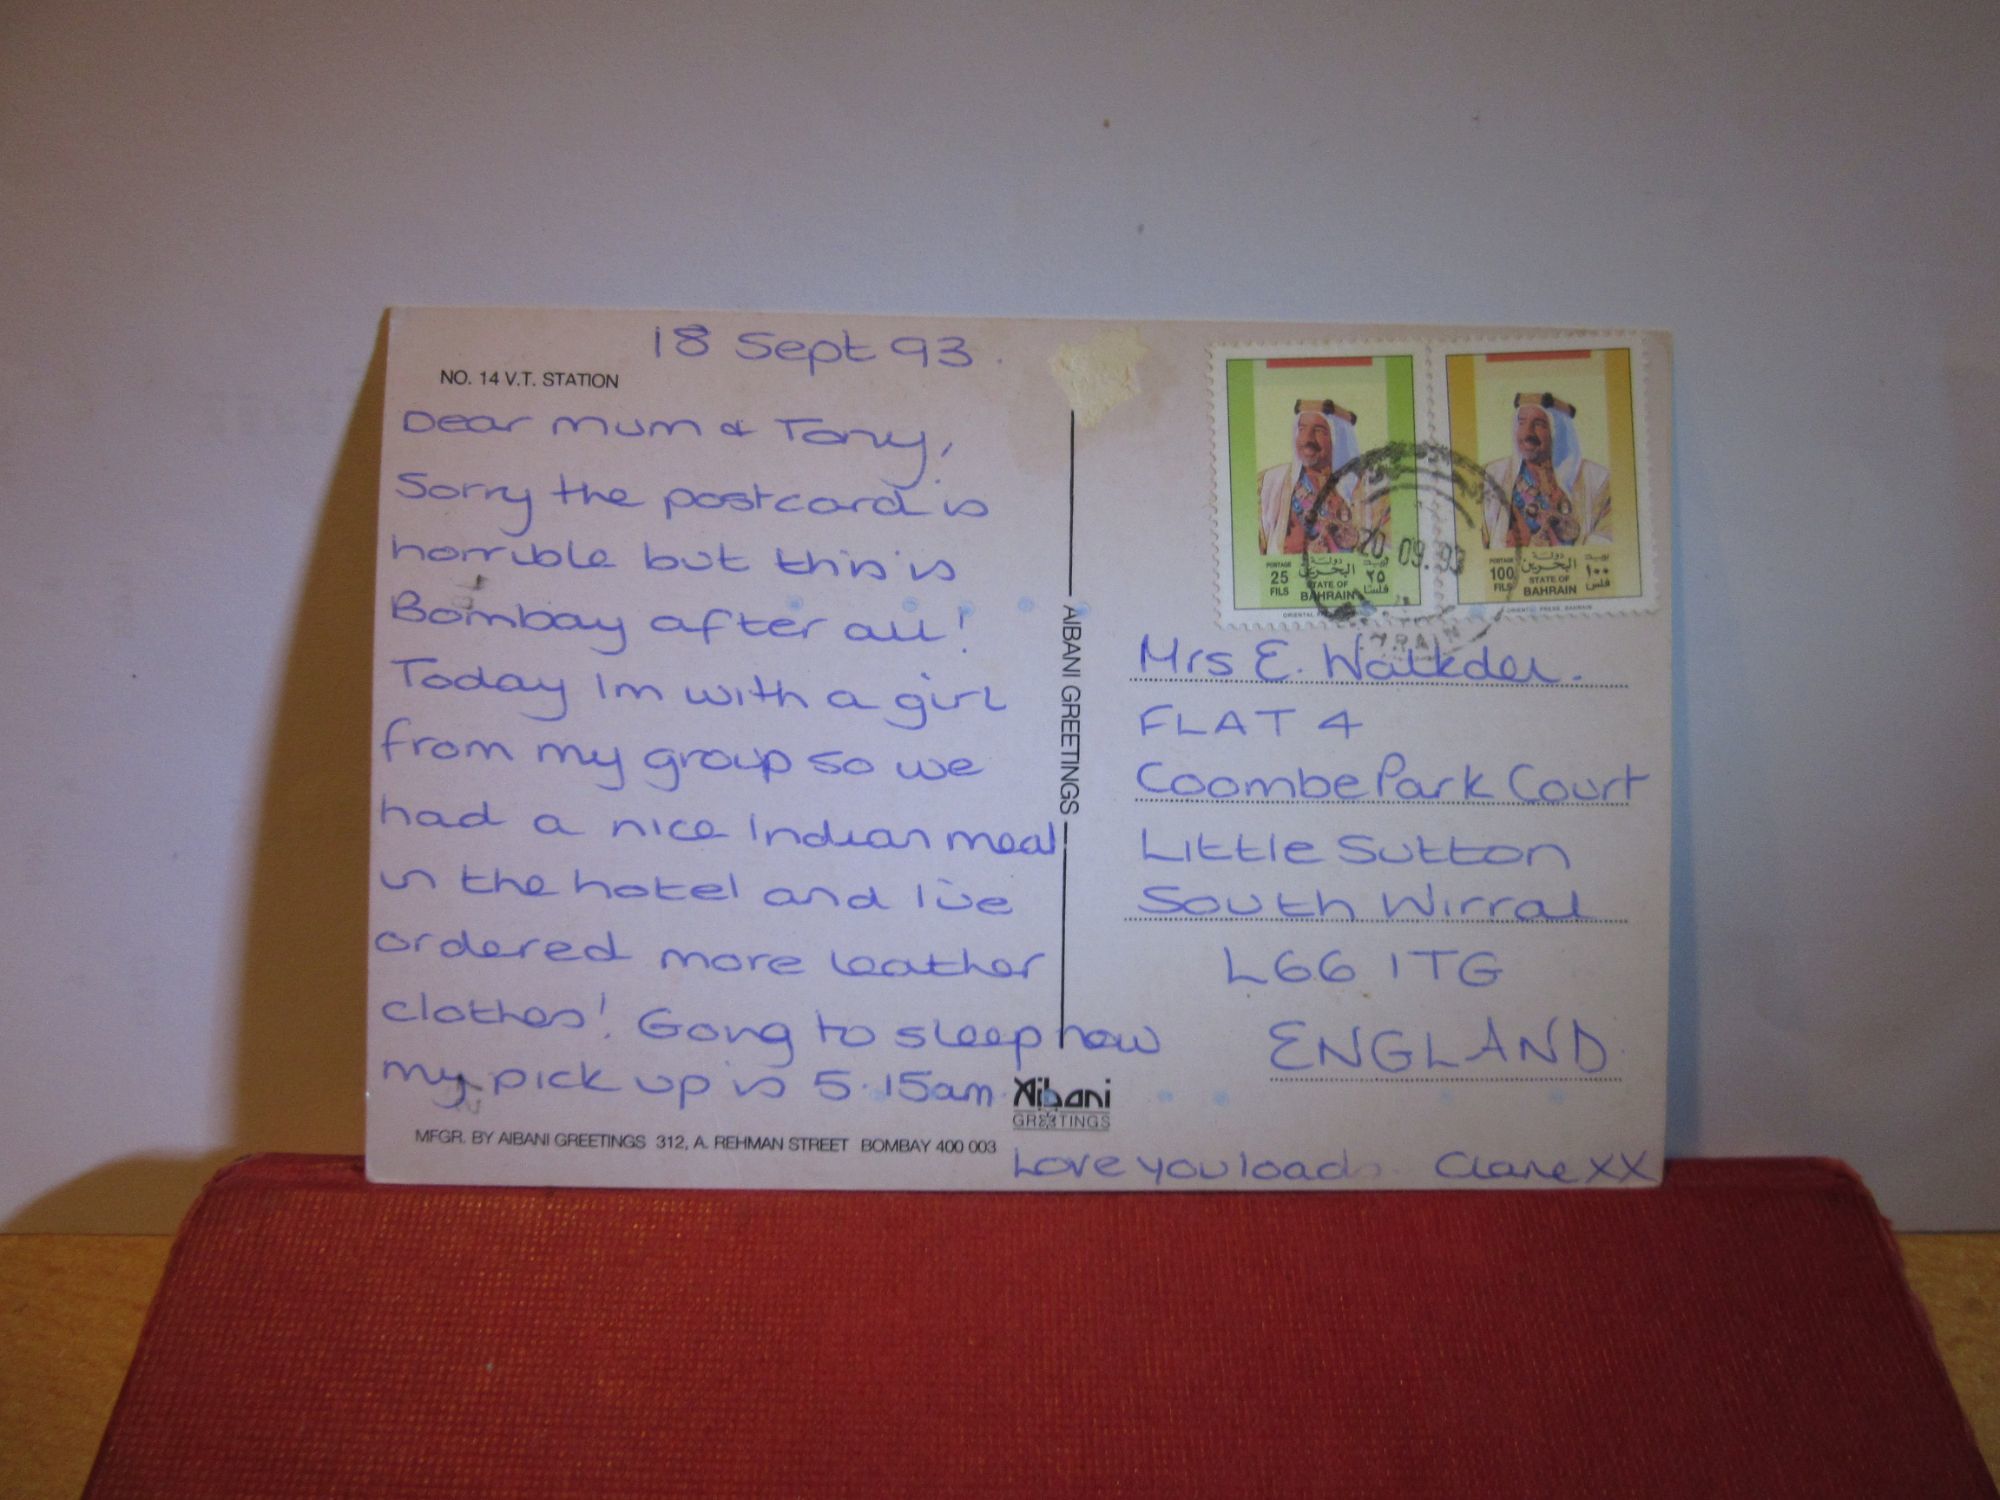 18 Sept 93.
NO. 14 V.T. STATION
Dear Mum & Tony,
Sorry the postcard is
horrible but this is
Bombay after all!
Today Im with a girl
from my group so we
had a nice Indian meal
in the hotel and I've
ordered more leather
clothes! Going to sleep now
my pick up is 5.15am.
MFGR. BY AIBANI GREETINGS 312, A. REHMAN STREET BOMBAY 400 003
AIBANI GREETINGS
Aibani
GREETINGS
Love you loads. Clare XX
POSTAGE
25
FILS
دولة
البحرين
STATE OF
BAHRAIN
بريد
٢٥
فلسا
POSTAGE
100
FILS
دولة
البحرين
STATE OF
BAHRAIN
بريد
١٠٠
فلس
ORIENTAL PRESS, BAHRAIN
20.09.93
Mrs E. Walkden.
FLAT 4
Coombe Park Court
Little Sutton
South Wirral
L66 1TG
ENGLAND